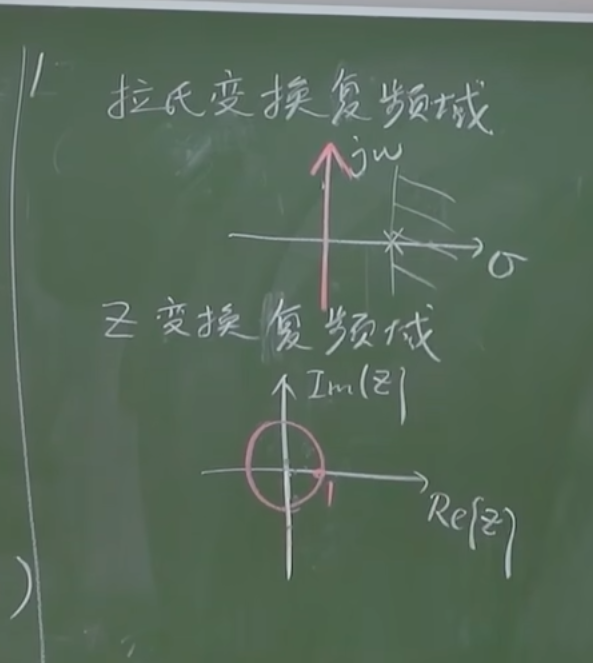 拉氏变换复频域
jω
σ
Z变换复频域
Im(z)
1
Re(z)
)